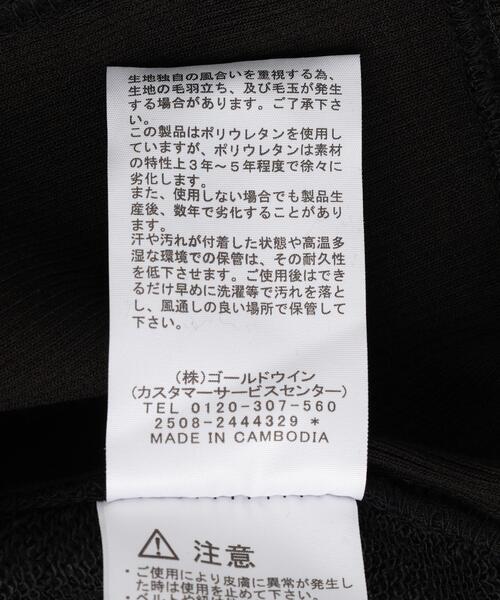 生地独自の風合いを重視する為、
生地の毛羽立ち、及び毛玉が発生
する場合があります。ご了承下さ
い。
この製品はポリウレタンを使用し
ていますが、ポリウレタンは素材
の特性上3年～5年程度で徐々に
劣化します。
また、使用しない場合でも製品生
産後、数年で劣化することがあり
ます。
汗や汚れが付着した状態や高温多
湿な環境での保管は、その耐久性
を低下させます。ご使用後はでき
るだけ早めに洗濯等で汚れを落と
し、風通しの良い場所で保管して
下さい。
(株)ゴールドウイン
(カスタマーサービスセンター)
TEL 0120-307-560
2508-2444329 *
MADE IN CAMBODIA
注意
・ご使用により皮膚に異常が発生し
た時は使用をお
・ベルトや紐は